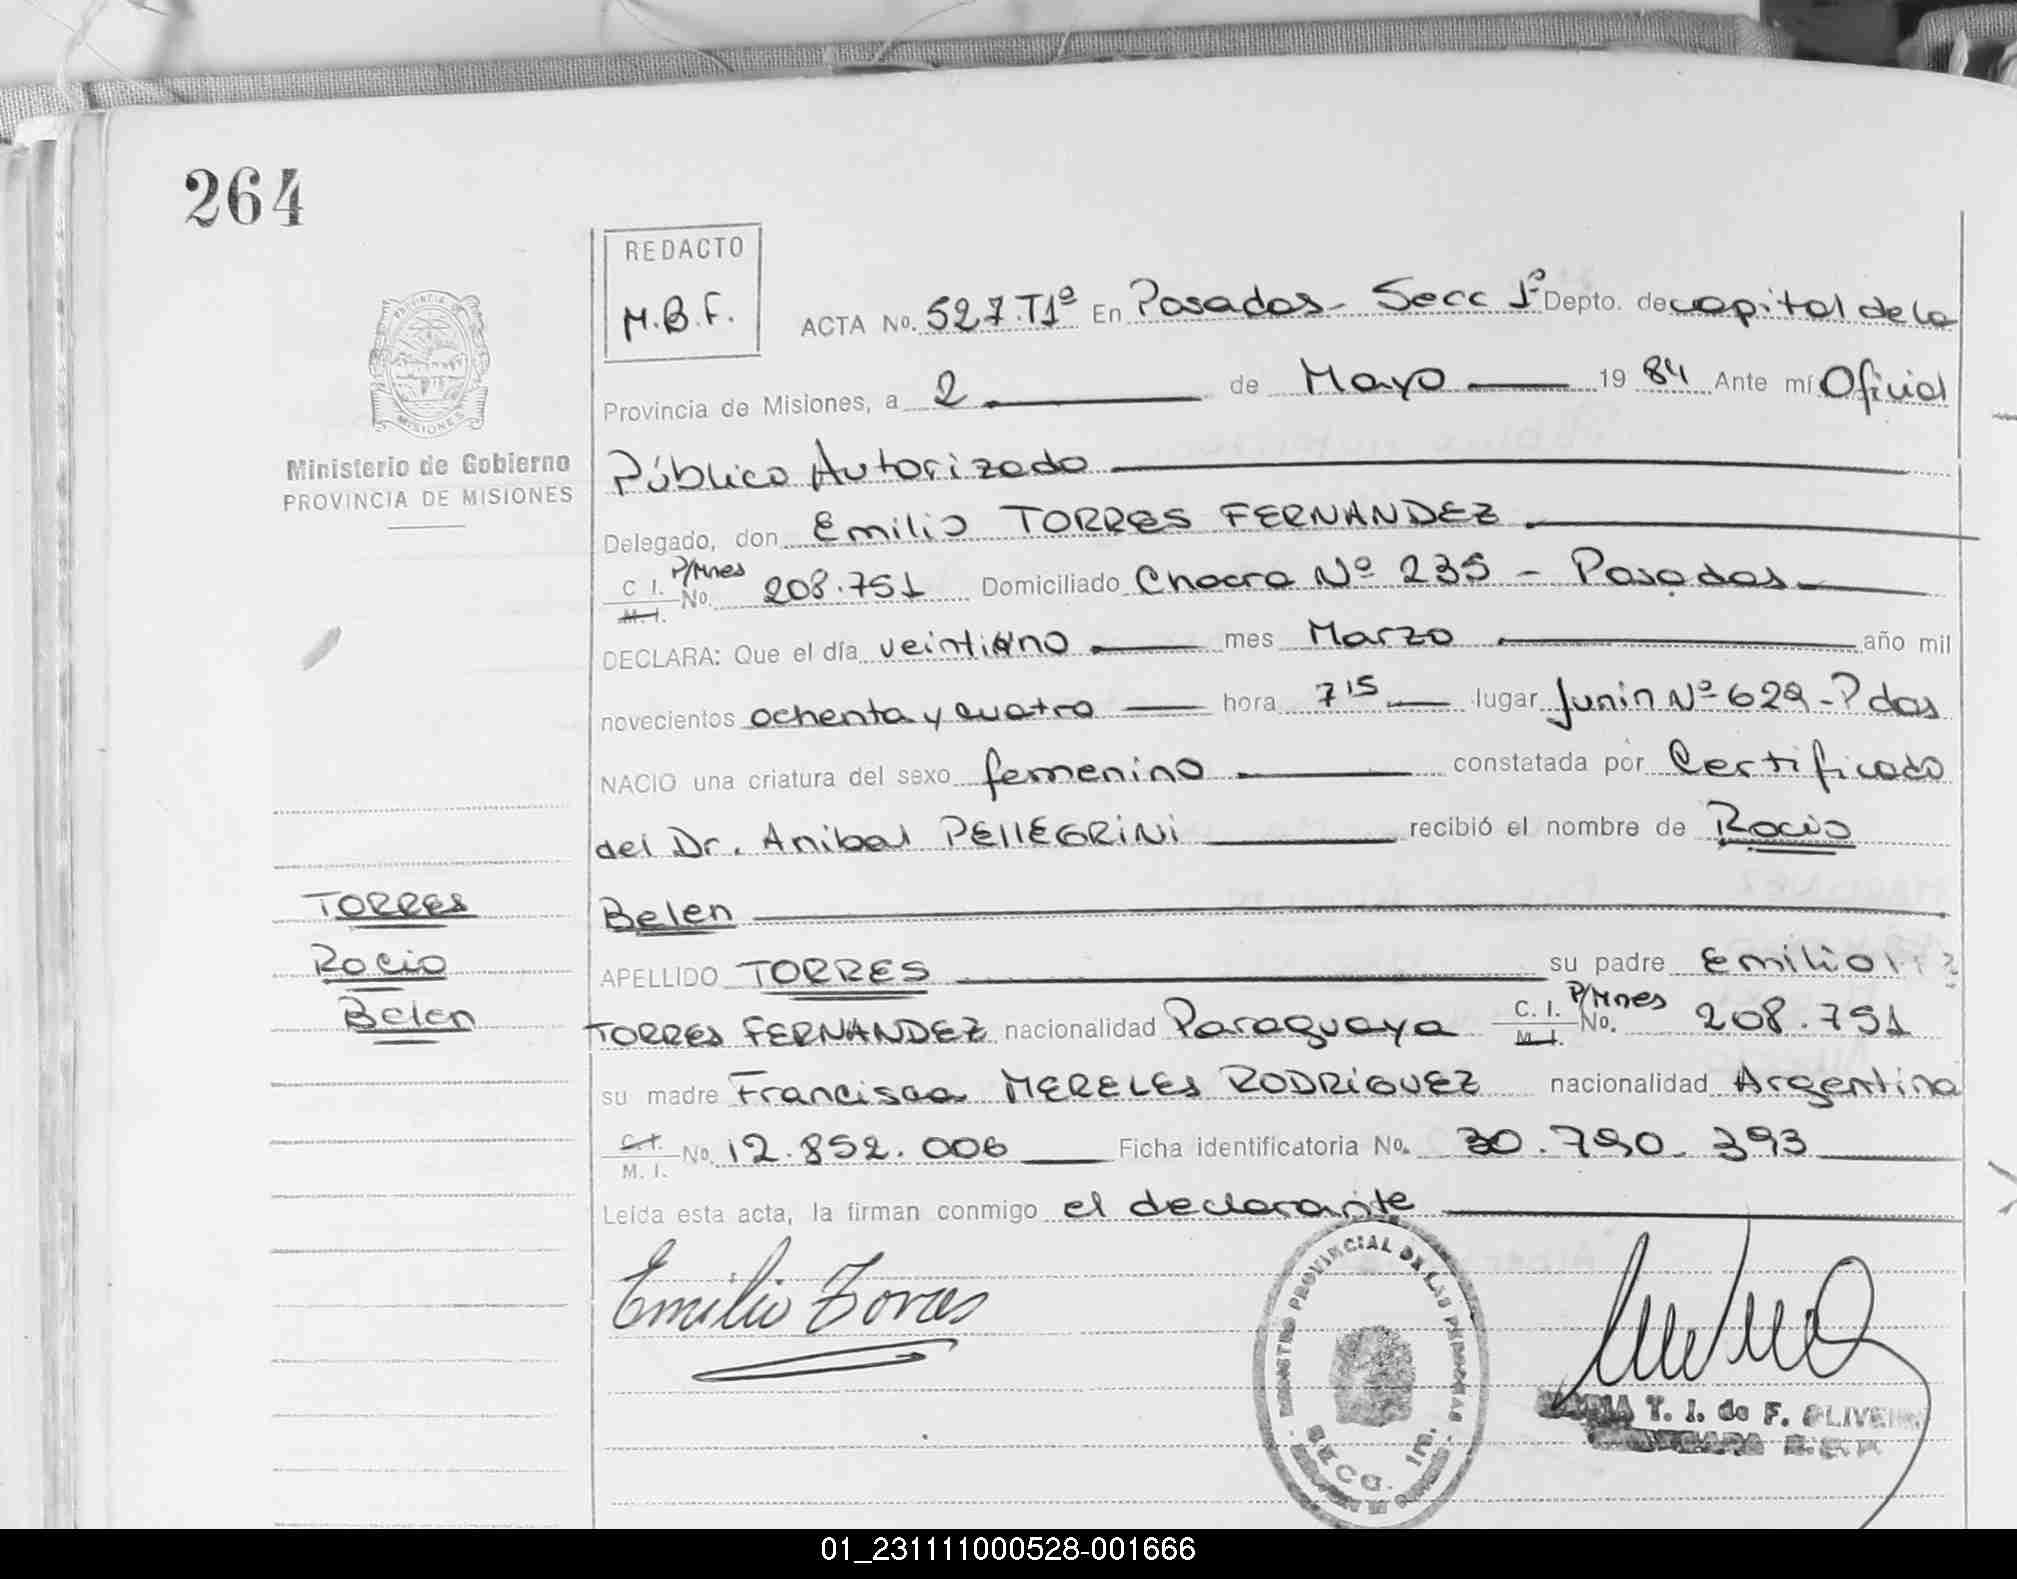 264
REDACTO
M.B.F.
ACTA No. 527.T1º En Posadas - Secc 1ª Depto. de capital de la
Provincia de Misiones, a 2 de Mayo 1984 Ante mí Oficial
Ministerio de Gobierno
PROVINCIA DE MISIONES
Público Autorizado
Delegado, don Emilio TORRES FERNANDEZ
C. I. M. I. No. P/Mnes 208.751 Domiciliado Chacra Nº 235 - Posadas
DECLARA: Que el día veintiuno mes Marzo año mil
novecientos ochenta y cuatro hora 7 15 lugar Junin Nº 629 - Pdas
NACIO una criatura del sexo femenino constatada por Certificado
del Dr. Anibal PELLEGRINI recibió el nombre de Rocio
TORRES
Belen
Rocio
APELLIDO TORRES su padre Emilio
Belen
TORRES FERNANDEZ nacionalidad Paraguaya C. I. M. I. No. P/Mnes 208.751
su madre Francisca MERELES RODRIGUEZ nacionalidad Argentina
C. I. M. I. No. 12.852.006 Ficha identificatoria No. 30.790.393
Leída esta acta, la firman conmigo el declarante
Emilio Torres
REGISTRO PROVINCIAL DE LAS PERSONAS
SECC. 1ra.
T. I. de F. OLIVEIRA
01_231111000528-001666